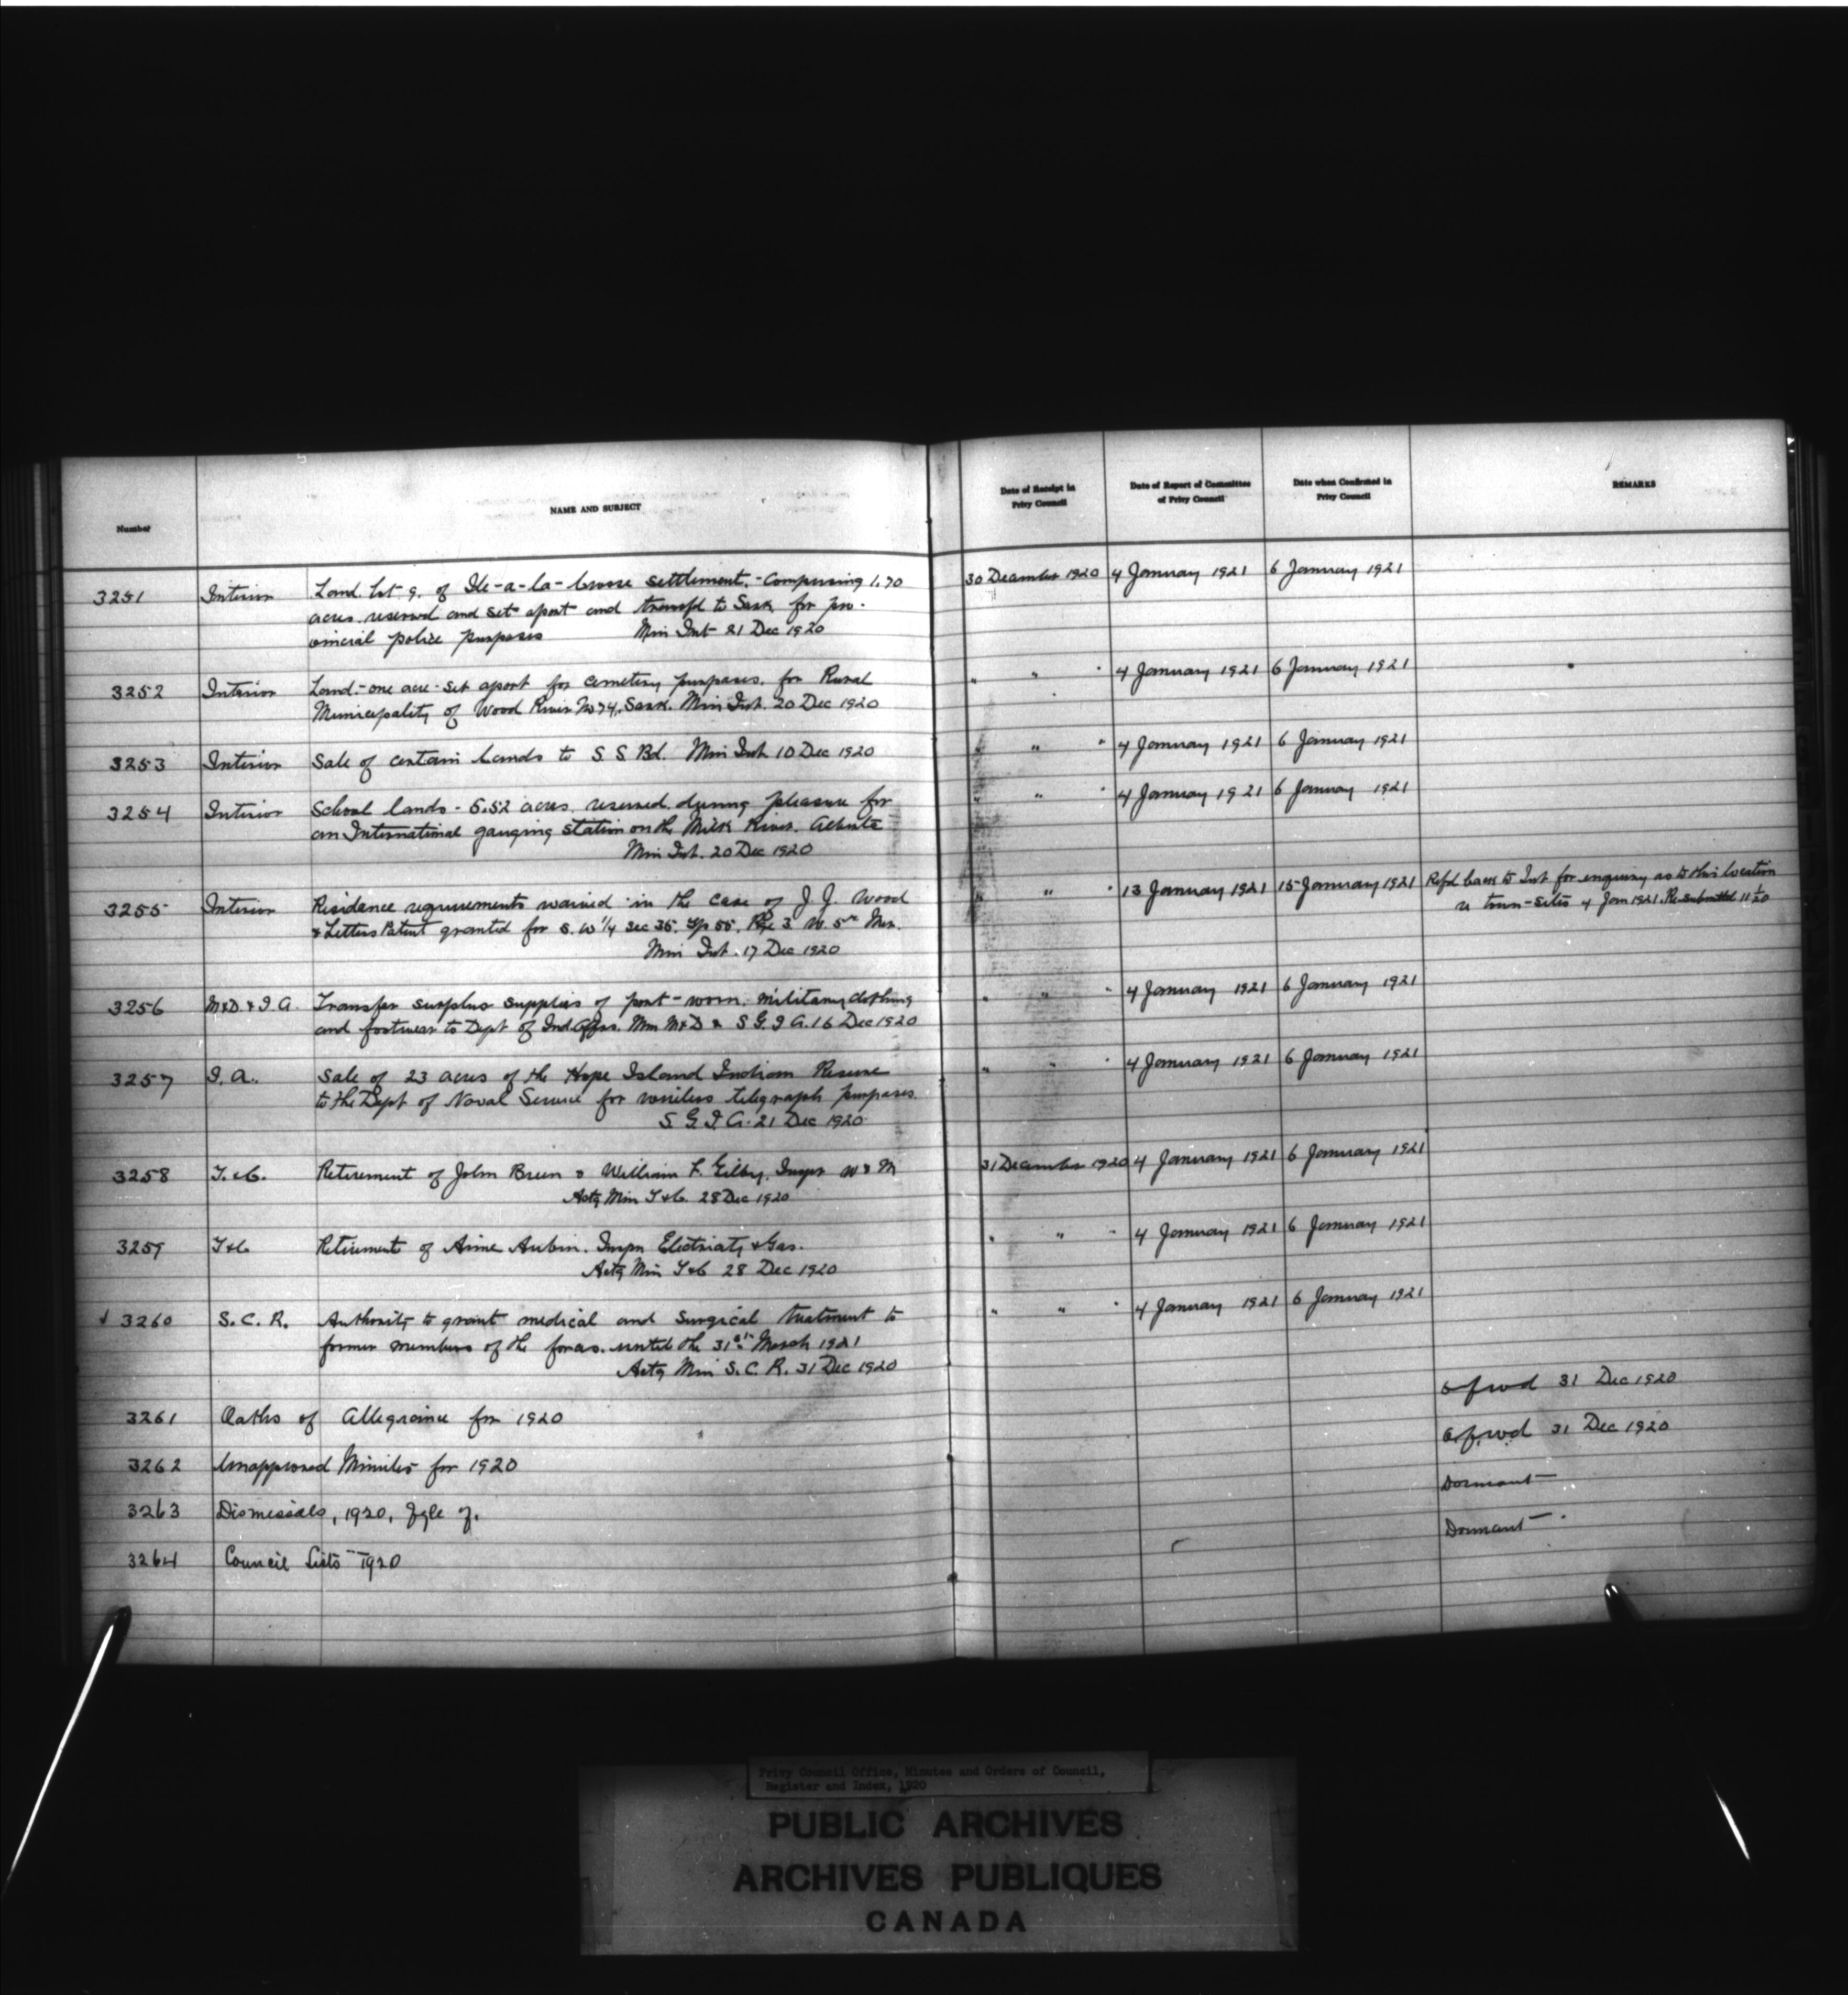 Number
NAME AND SUBJECT
Date of Receipt in
Privy Council
Date of Report of Committee
of Privy Council
Date when Confirmed in
Privy Council
REMARKS
3251 Interior Land. Lot 9. of Ile-a-la-Crosse settlement. - Comprising 1.70 30 December 1920 4 January 1921 6 January 1921
acres. reserved and set apart and transfd to Sask for pro-
vincial police purposes Min Int 21 Dec 1920
3252 Interior Land. - one acre - set apart for cemetery purposes. for Rural " " " 4 January 1921 6 January 1921
Municipality of Wood River No 74. Sask. Min Int. 20 Dec 1920
3253 Interior Sale of certain lands to S. S. Bd. Min Int. 10 Dec 1920 " " " 4 January 1921 6 January 1921
3254 Interior School lands - 5.52 acres. reserved. during pleasure for " " " 4 January 1921 6 January 1921
an International gauging station on the Milk River. Alberta
Min Int. 20 Dec 1920
3255 Interior Residence requirements waived in the case of J. J. Wood " " " 13 January 1921 15 January 1921 Refd back to Int. for enquiry as to this location
& Letters Patent granted for S. W 1/4 Sec 35. Tp 55. Rge 3 W. 5th Mer. town-sites 4 Jan 1921. Re-submitted
Min Int. 17 Dec 1920
3256 M&D & I A. Transfer surplus supplies of part-worn. military clothing " " " 4 January 1921 6 January 1921
and footwear to Dept of Ind. Affrs. Min M&D & S G. I A. 16 Dec 1920
3257 I. A. Sale of 23 acres of the Hope Island Indian Reserve " " " 4 January 1921 6 January 1921
to the Dept of Naval Service for wireless telegraph purposes.
S. G. I. A. 21 Dec 1920
3258 T. &C. Retirement of John Breen & William F. Gilby. Inspr W & M 31 December 1920 4 January 1921 6 January 1921
Actg Min T &C. 28 Dec 1920
3259 T &C Retirement of Aime Aubin. Inspn Electricity & Gas. " " " 4 January 1921 6 January 1921
Actg Min T &C 28 Dec 1920
3260 S. C. R. Authority to grant medical and surgical treatment to " " " 4 January 1921 6 January 1921
former members of the forces. until the 31st March 1921
Actg Min S. C. R. 31 Dec 1920
3261 Oaths of Allegiance for 1920 31 Dec 1920
3262 Unapproved Minutes for 1920 31 Dec 1920
3263 Dismissals, 1920, file of. Dormant
3264 Council Lists 1920 Dormant
Privy Council Office, Minutes and Orders of Council,
Register and Index, 1920
PUBLIC ARCHIVES
ARCHIVES PUBLIQUES
CANADA